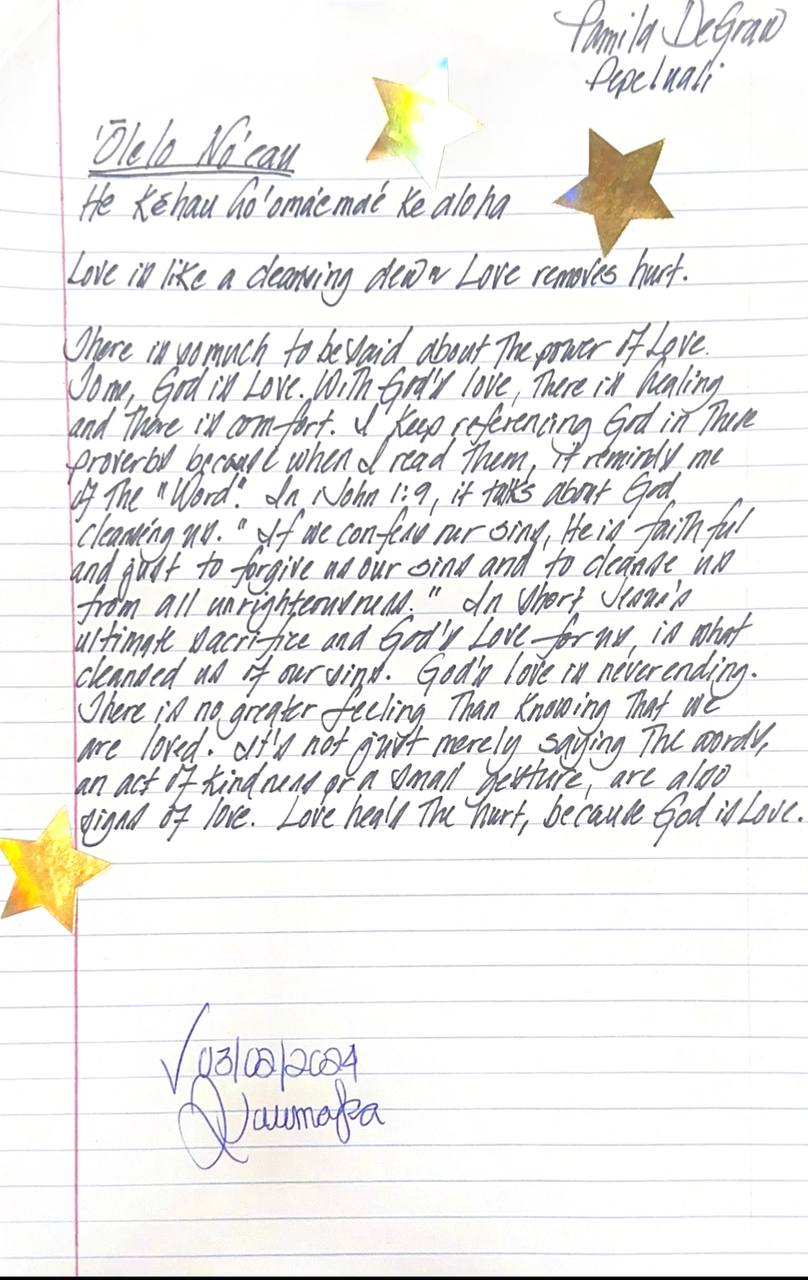 Pamila DeGraw
Pepeluali
'Ōlelo No'eau
He Kēhau ho'omáemáé Ke aloha
Love is like a cleansing dew ~ Love removes hurt.
There is so much to be said about The power of Love.
To me, God is Love. With God's love, There is healing
and there is comfort. I keep referencing God in These
proverbs because when I read Them, it reminds me
of The "Word". In 1 John 1:9, it talks about God
cleansing us. "If we confess our sins, He is faithful
and just to forgive us our sins and to cleanse us
from all unrighteousness." In short Jesus's
ultimate sacrifice and God's Love for us, is what
cleansed us of our sins. God's love is never ending.
There is no greater feeling Than Knowing That we
are loved. It's not just merely saying The words,
an act of Kindness or a small gesture, are also
signs of love. Love heals The hurt, because God is Love.
✓ 03/02/2024